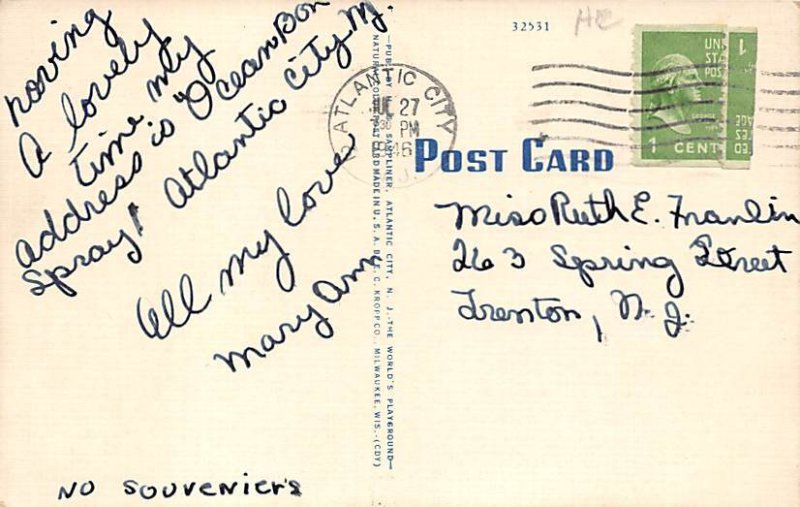 roving
A lovely
time. my
address is "Ocean Bon
Spray! Atlantic City NJ.
All my love
Mary Ann
NO SOUVENIER'S
—PUB. BY SAMPLINER, ATLANTIC CITY, N. J.—THE WORLD'S PLAYGROUND—
NATURAL COLOR POST CARD MADE IN U. S. A. BY E. C. KROPP CO., MILWAUKEE, WIS.—(CDY)
32531
HC
ATLANTIC CITY
27
PM
1946
UNI
STA
POS
1 CENT
1
AGE
ES
ED
POST CARD
Miss Ruth E. Franlin
263 Spring Street
Trenton, N.J.